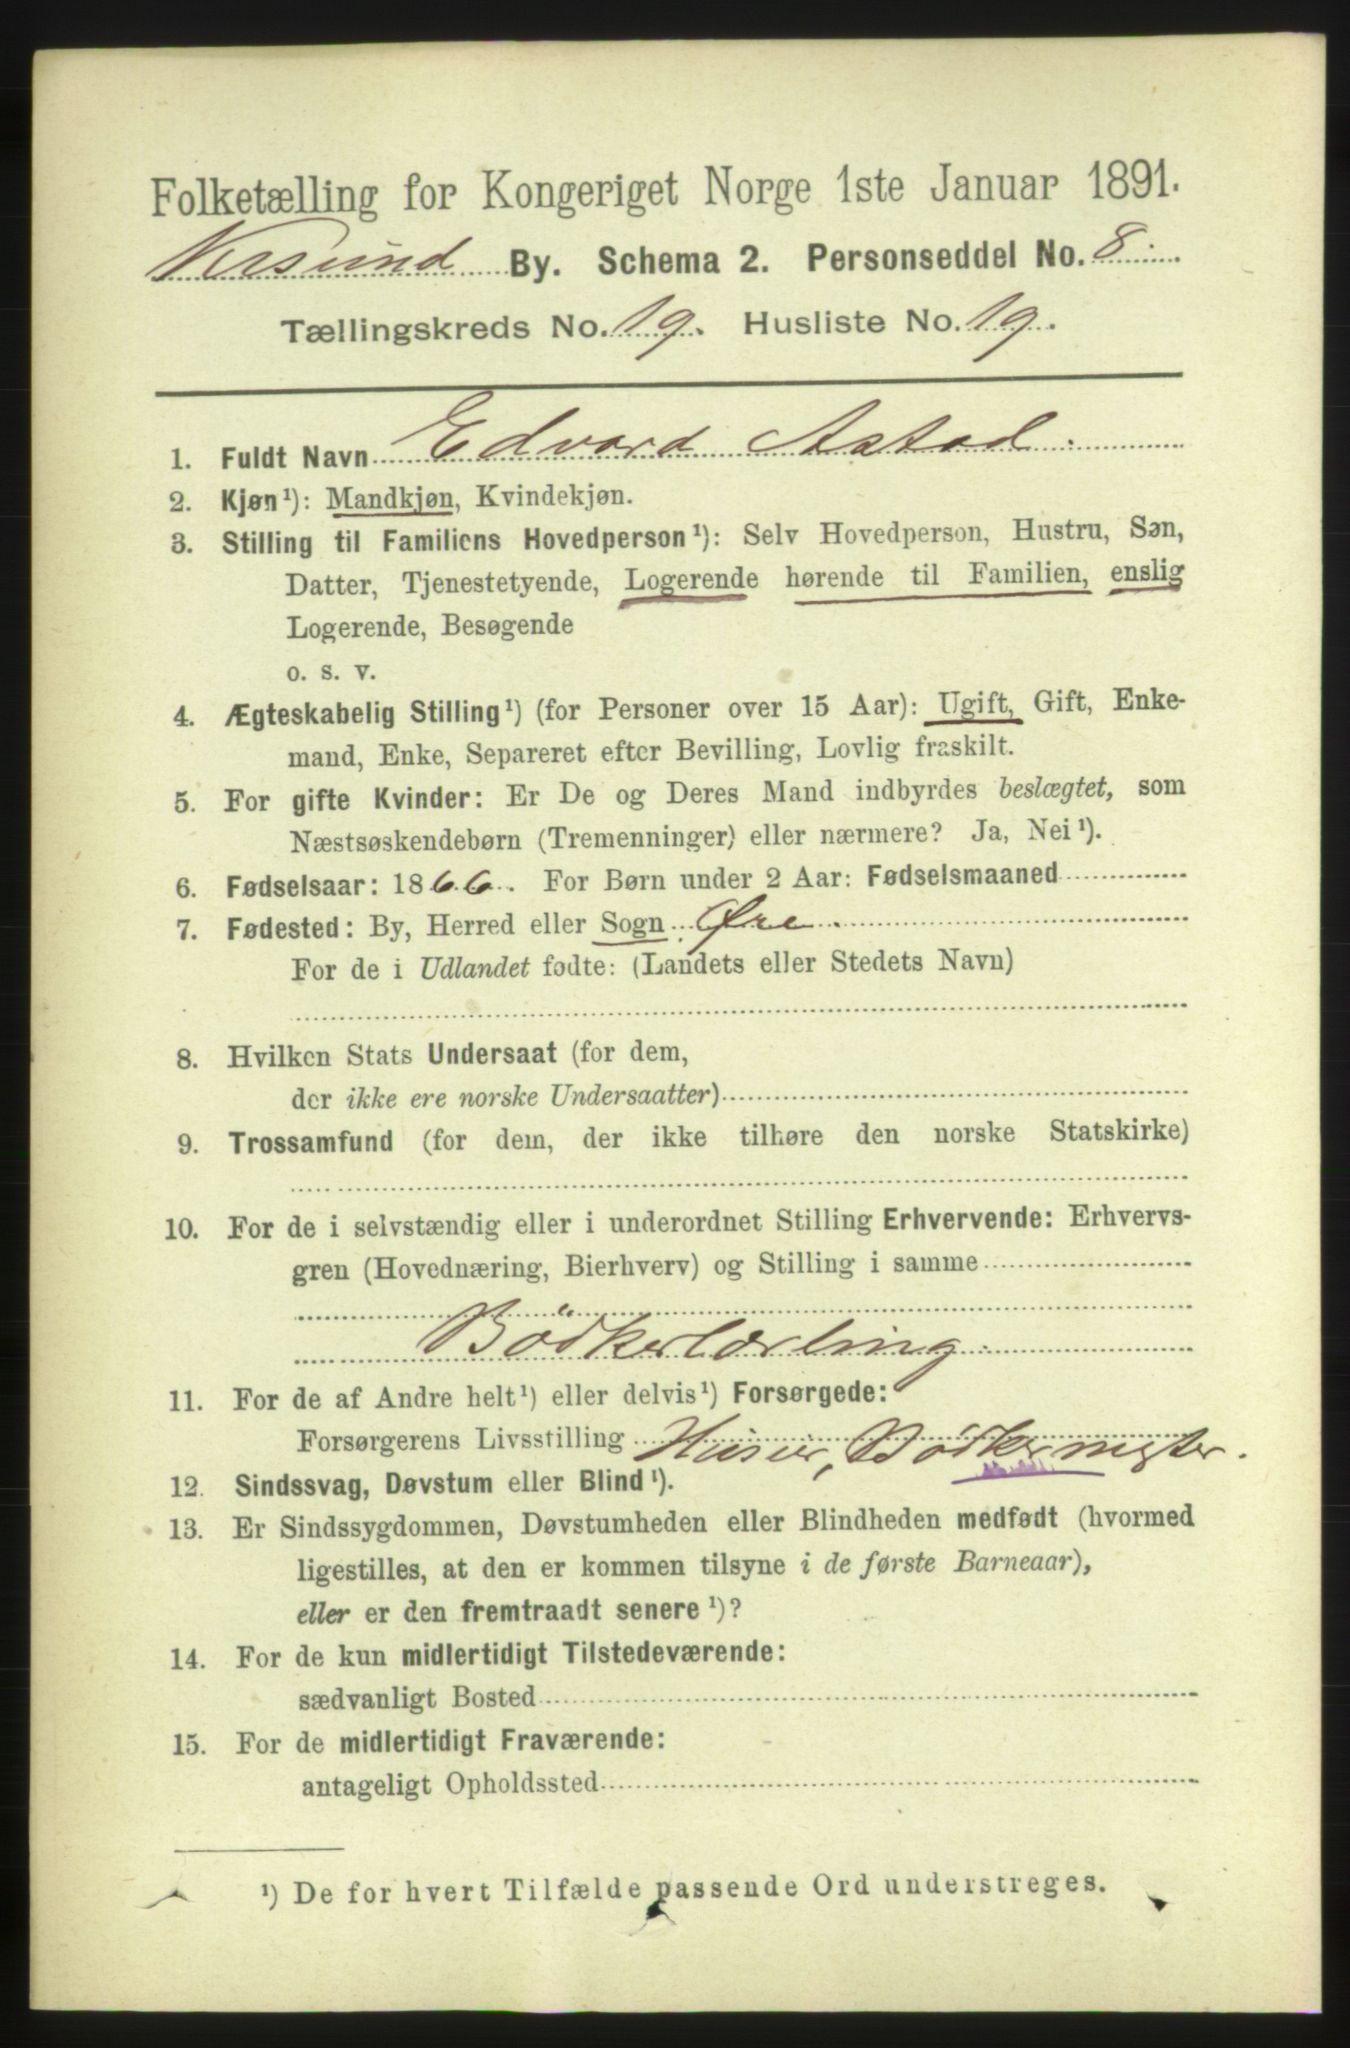 Folketælling for Kongeriget Norge 1ste Januar 1891.
Krsund By. Schema 2. Personseddel No. 8.
Tællingskreds No. 19. Husliste No. 19.
1. Fuldt Navn Edvard Astad.
2. Kjøn¹): Mandkjøn, Kvindekjøn.
3. Stilling til Familiens Hovedperson¹): Selv Hovedperson, Hustru, Søn,
Datter, Tjenestetyende, Logerende hørende til Familien, enslig
Logerende, Besøgende
o. s. v.
4. Ægteskabelig Stilling¹) (for Personer over 15 Aar): Ugift, Gift, Enke-
mand, Enke, Separeret efter Bevilling, Lovlig fraskilt.
5. For gifte Kvinder: Er De og Deres Mand indbyrdes beslægtet, som
Næstsøskendebørn (Tremenninger) eller nærmere? Ja, Nei¹).
6. Fødselsaar: 1866. For Børn under 2 Aar: Fødselsmaaned
7. Fødested: By, Herred eller Sogn Øre.
For de i Udlandet fødte: (Landets eller Stedets Navn)
8. Hvilken Stats Undersaat (for dem,
der ikke ere norske Undersaatter)
9. Trossamfund (for dem, der ikke tilhøre den norske Statskirke)
10. For de i selvstændig eller i underordnet Stilling Erhvervende: Erhvervs-
gren (Hovednæring, Bierhverv) og Stilling i samme
Bödkerlærling.
11. For de af Andre helt¹) eller delvis¹) Forsørgede:
Forsørgerens Livsstilling Huseier, Bödkermester.
12. Sindssvag, Døvstum eller Blind¹).
13. Er Sindssygdommen, Døvstumheden eller Blindheden medfødt (hvormed
ligestilles, at den er kommen tilsyne i de første Barneaar),
eller er den fremtraadt senere¹)?
14. For de kun midlertidigt Tilstedeværende:
sædvanligt Bosted
15. For de midlertidigt Fraværende:
antageligt Opholdssted
¹) De for hvert Tilfælde passende Ord understreges.